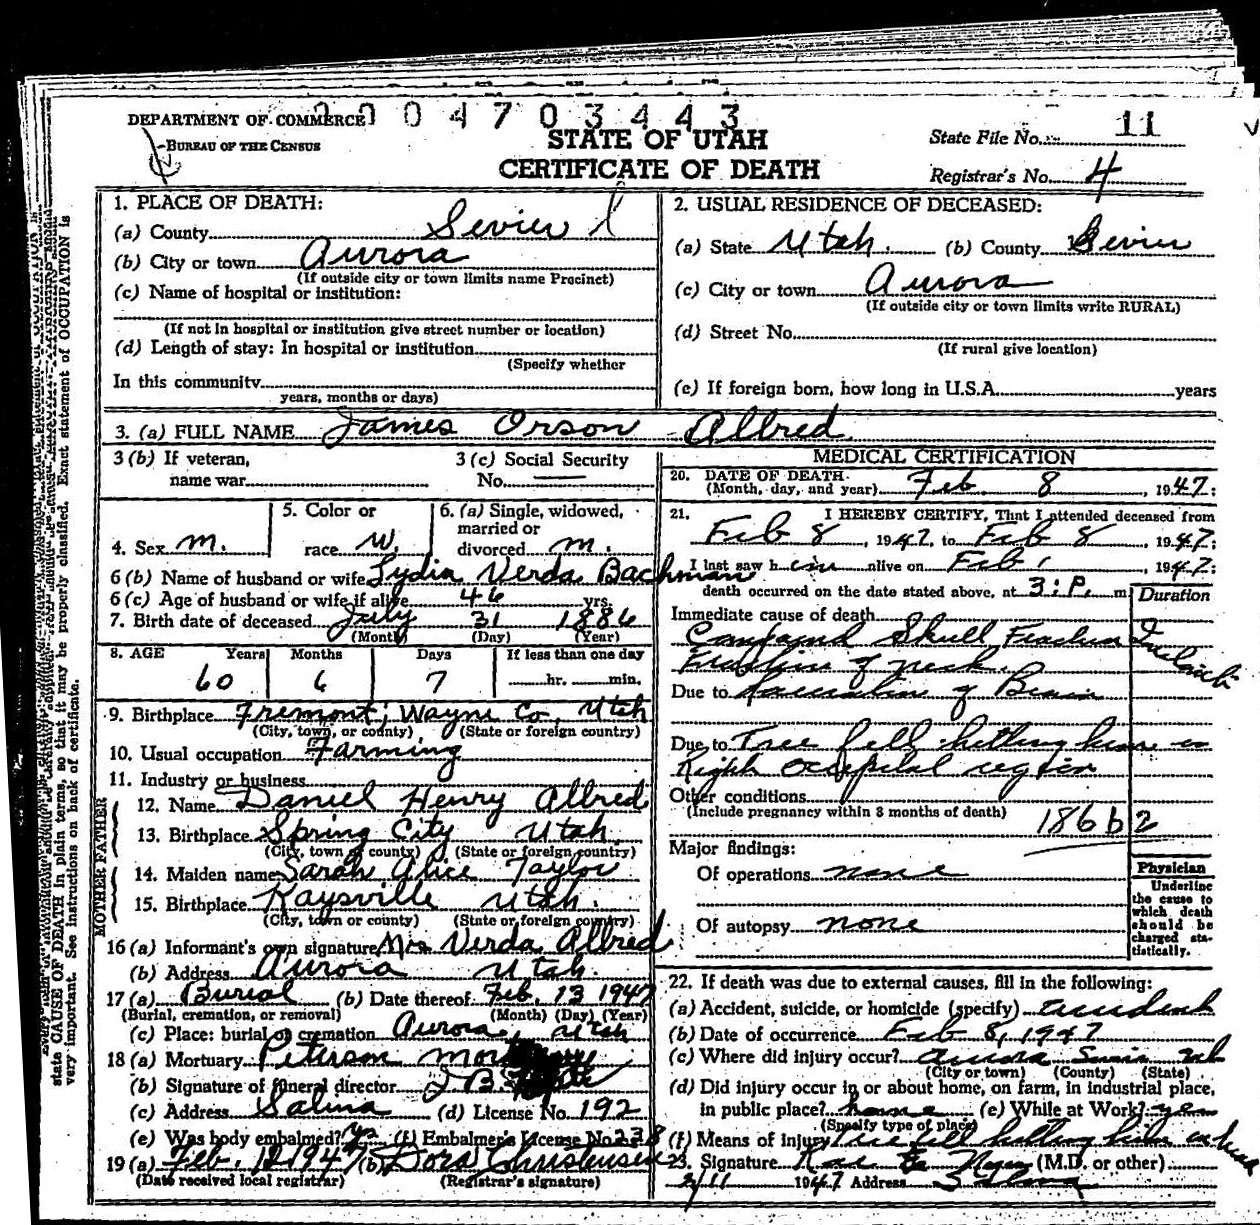 2004703443
DEPARTMENT OF COMMERCE
BUREAU OF THE CENSUS
STATE OF UTAH
CERTIFICATE OF DEATH
State File No. 11
Registrar's No. 4
1. PLACE OF DEATH:
(a) County Sevier
(b) City or town Aurora
(If outside city or town limits name Precinct)
(c) Name of hospital or institution:
(If not in hospital or institution give street number or location)
(d) Length of stay: In hospital or institution
(Specify whether
In this community
years, months or days)
2. USUAL RESIDENCE OF DECEASED:
(a) State Utah. (b) County Sevier
(c) City or town Aurora
(If outside city or town limits write RURAL)
(d) Street No.
(If rural give location)
(e) If foreign born, how long in U.S.A. years
3. (a) FULL NAME James Orson Allred
3 (b) If veteran,
name war
3 (c) Social Security
No. —
4. Sex m.
5. Color or
race W.
6. (a) Single, widowed,
married or
divorced m.
6 (b) Name of husband or wife Lydia Verda Bachman
6 (c) Age of husband or wife if alive 46 yrs.
7. Birth date of deceased July 31 1886
(Month) (Day) (Year)
8. AGE Years Months Days If less than one day
60 6 7 hr. min.
9. Birthplace Fremont, Wayne Co, Utah
(City, town, or county) (State or foreign country)
10. Usual occupation Farming
11. Industry or business
FATHER
12. Name Daniel Henry Allred
13. Birthplace Spring City Utah
(City, town or county) (State or foreign country)
MOTHER
14. Maiden name Sarah Alice Taylor
15. Birthplace Kaysville Utah.
(City, town or county) (State or foreign country)
16 (a) Informant's own signature Mrs Verda Allred
(b) Address Aurora Utah.
17 (a) Burial (b) Date thereof Feb. 13 1947
(Burial, cremation, or removal) (Month) (Day) (Year)
(c) Place: burial or cremation Aurora, Utah
18 (a) Mortuary Peterson
(b) Signature of funeral director
(c) Address Salina (d) License No. 192
(e) Was body embalmed? yes (f) Embalmer's License No. 238
19 (a) Feb. 12 1947 (b) Dora Christensen
(Date received local registrar) (Registrar's signature)
MEDICAL CERTIFICATION
20. DATE OF DEATH
(Month, day, and year) Feb. 8, 1947:
21. I HEREBY CERTIFY, That I attended deceased from
Feb 8, 1947, to Feb 8 1947:
I last saw him alive on Feb 1947:
death occurred on the date stated above, at 3:P. m
Duration
Immediate cause of death
Compound Skull Fracture
Fracture of neck.
Due to Laceration of Brain
Due to Tree fell hitting him in
Right occipital region
Other conditions
(Include pregnancy within 3 months of death)
186b2
Major findings:
Of operations none
Of autopsy none
Physician
Underline
the cause to
which death
should be
charged sta-
tistically.
22. If death was due to external causes, fill in the following:
(a) Accident, suicide, or homicide (specify) accident
(b) Date of occurrence Feb 8, 1947
(c) Where did injury occur? Aurora Sevier Utah
(City or town) (County) (State)
(d) Did injury occur in or about home, on farm, in industrial place,
in public place? home (e) While at Work? yes
(Specify type of place)
(f) Means of injury Tree fell hitting him on head
23. Signature (M.D. or other)
2/11 1947 Address Salina
state CAUSE OF DEATH in plain terms, so that it may be properly classified. Exact statement of OCCUPATION is
very important. See instructions on back of certificate.